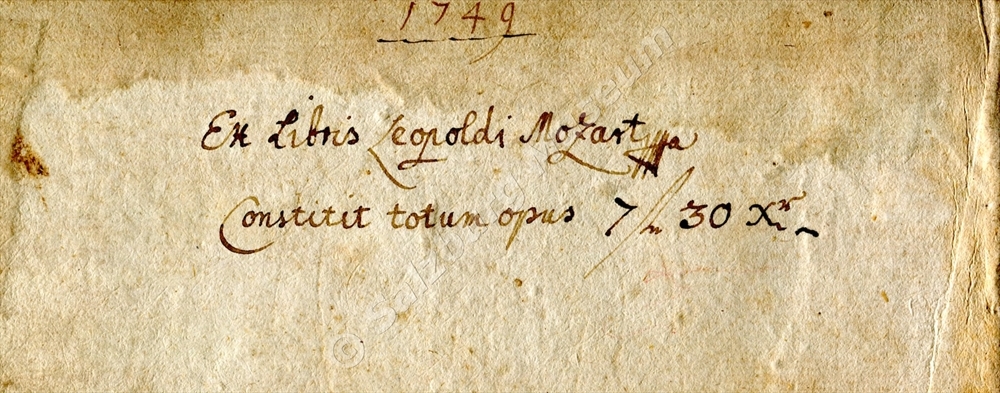 1749
Ex Libris Leopoldi Mozart
Constitit totum opus 7 fl 30 Xr
© Salzburg Museum